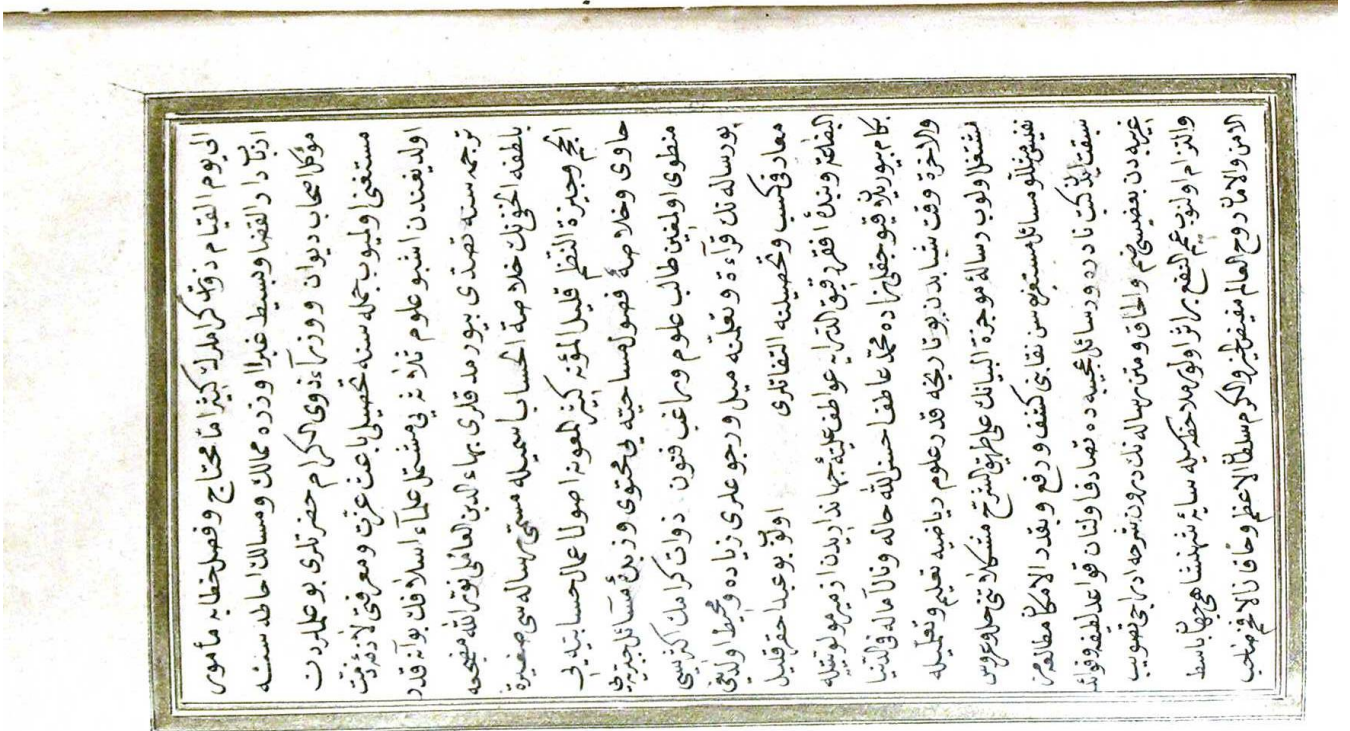 الى يوم القيام ذوات كرامدن كثيرا ما محتاج وفصل خطابه مأمور
ارباب دار القضا وبسيط غبرا اوزره ممالك ومسالك احاطه سنه
موكل اصحاب ديوان ووزرآء ذوى الكرام حضرتلرى بو علملردن
مستغنى اولميوب جمله سنه تحصيلى باعث عزت ومعرفتى لازمۀ ذمت
اولديغندن اشبو علوم ثلاثه يى مشتمل علمآء اسلافك بوآنه قدر
ترجمه سنه تصدى بيورمدقلرى بهاء الدين العاملى نور الله مضجعه
بلطفه الخفينك خلاصة الحساب اسميله مسمى رساله سى صغيرة
الحجم وجيزة النظم قليل المؤنه كثير المعونه اصول اعمال حسابيه يى
حاوى وخلاصۀ فصول مساحتيه يى محتوى وزبدۀ مسائل جبريه يى
منطوى اولمغين طالب علوم وراغب فنون ذوات كرامك اكثريسى
بو رساله نك قرآءة وتعلمنه ميل ورجوعلرى زياده واكا محيط اولديغى
معارفى كسب وتحصيلنه التفاتلرى اولوب بو عبد احقر قليل
البضاعه وبندۀ افقر دقيق الدرايه عواطف عليۀ جهاندارايدن ازمير مولويتيله
بكام بيوريلان قيوجقلى زاده محمد عاطف احسن الله حاله ونال آماله فى الدنيا
والاخرة وقت شبابدن بو تاريخه قدر علوم رياضيه تعليم وتعلميله
مشتغل اولوب رسالۀ موجزة البيانك على طريق الشرح مشكلاتنى حل وعروس
نفيس مثللو مسائل مستغربه سن نقابنى كشف ورفع وبقدر الامكان مطالعه مز
سبقت ايدن كتب نادره ورسائل عجيبه ده تصادف اولنان قواعد لطيفه وفوائد
غريبه دن بعضيسى ضم والحاق ومتن رساله نك درون شرحه درجى تصويب
والتزام اولنوب عميم النفع بر اثر اولور ملاحظه سيله سايۀ شهنشاهى جهانيان باسط
الامن والامان روح العالم مفيض الخير والكرم سلطان الاعظم وخاقان الافخم صاحب